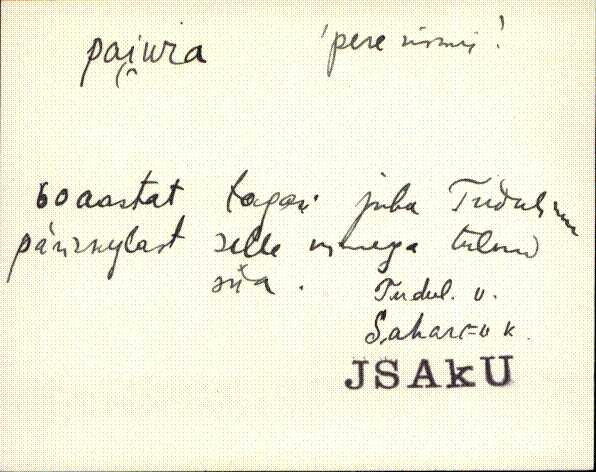 pai̯ura 'perenimi'.
60 aastat tagasi juba Tudulinna
päriskylast selle nimega tulnud
siia. Tudul. v.
Sahargu k.
JSAkU